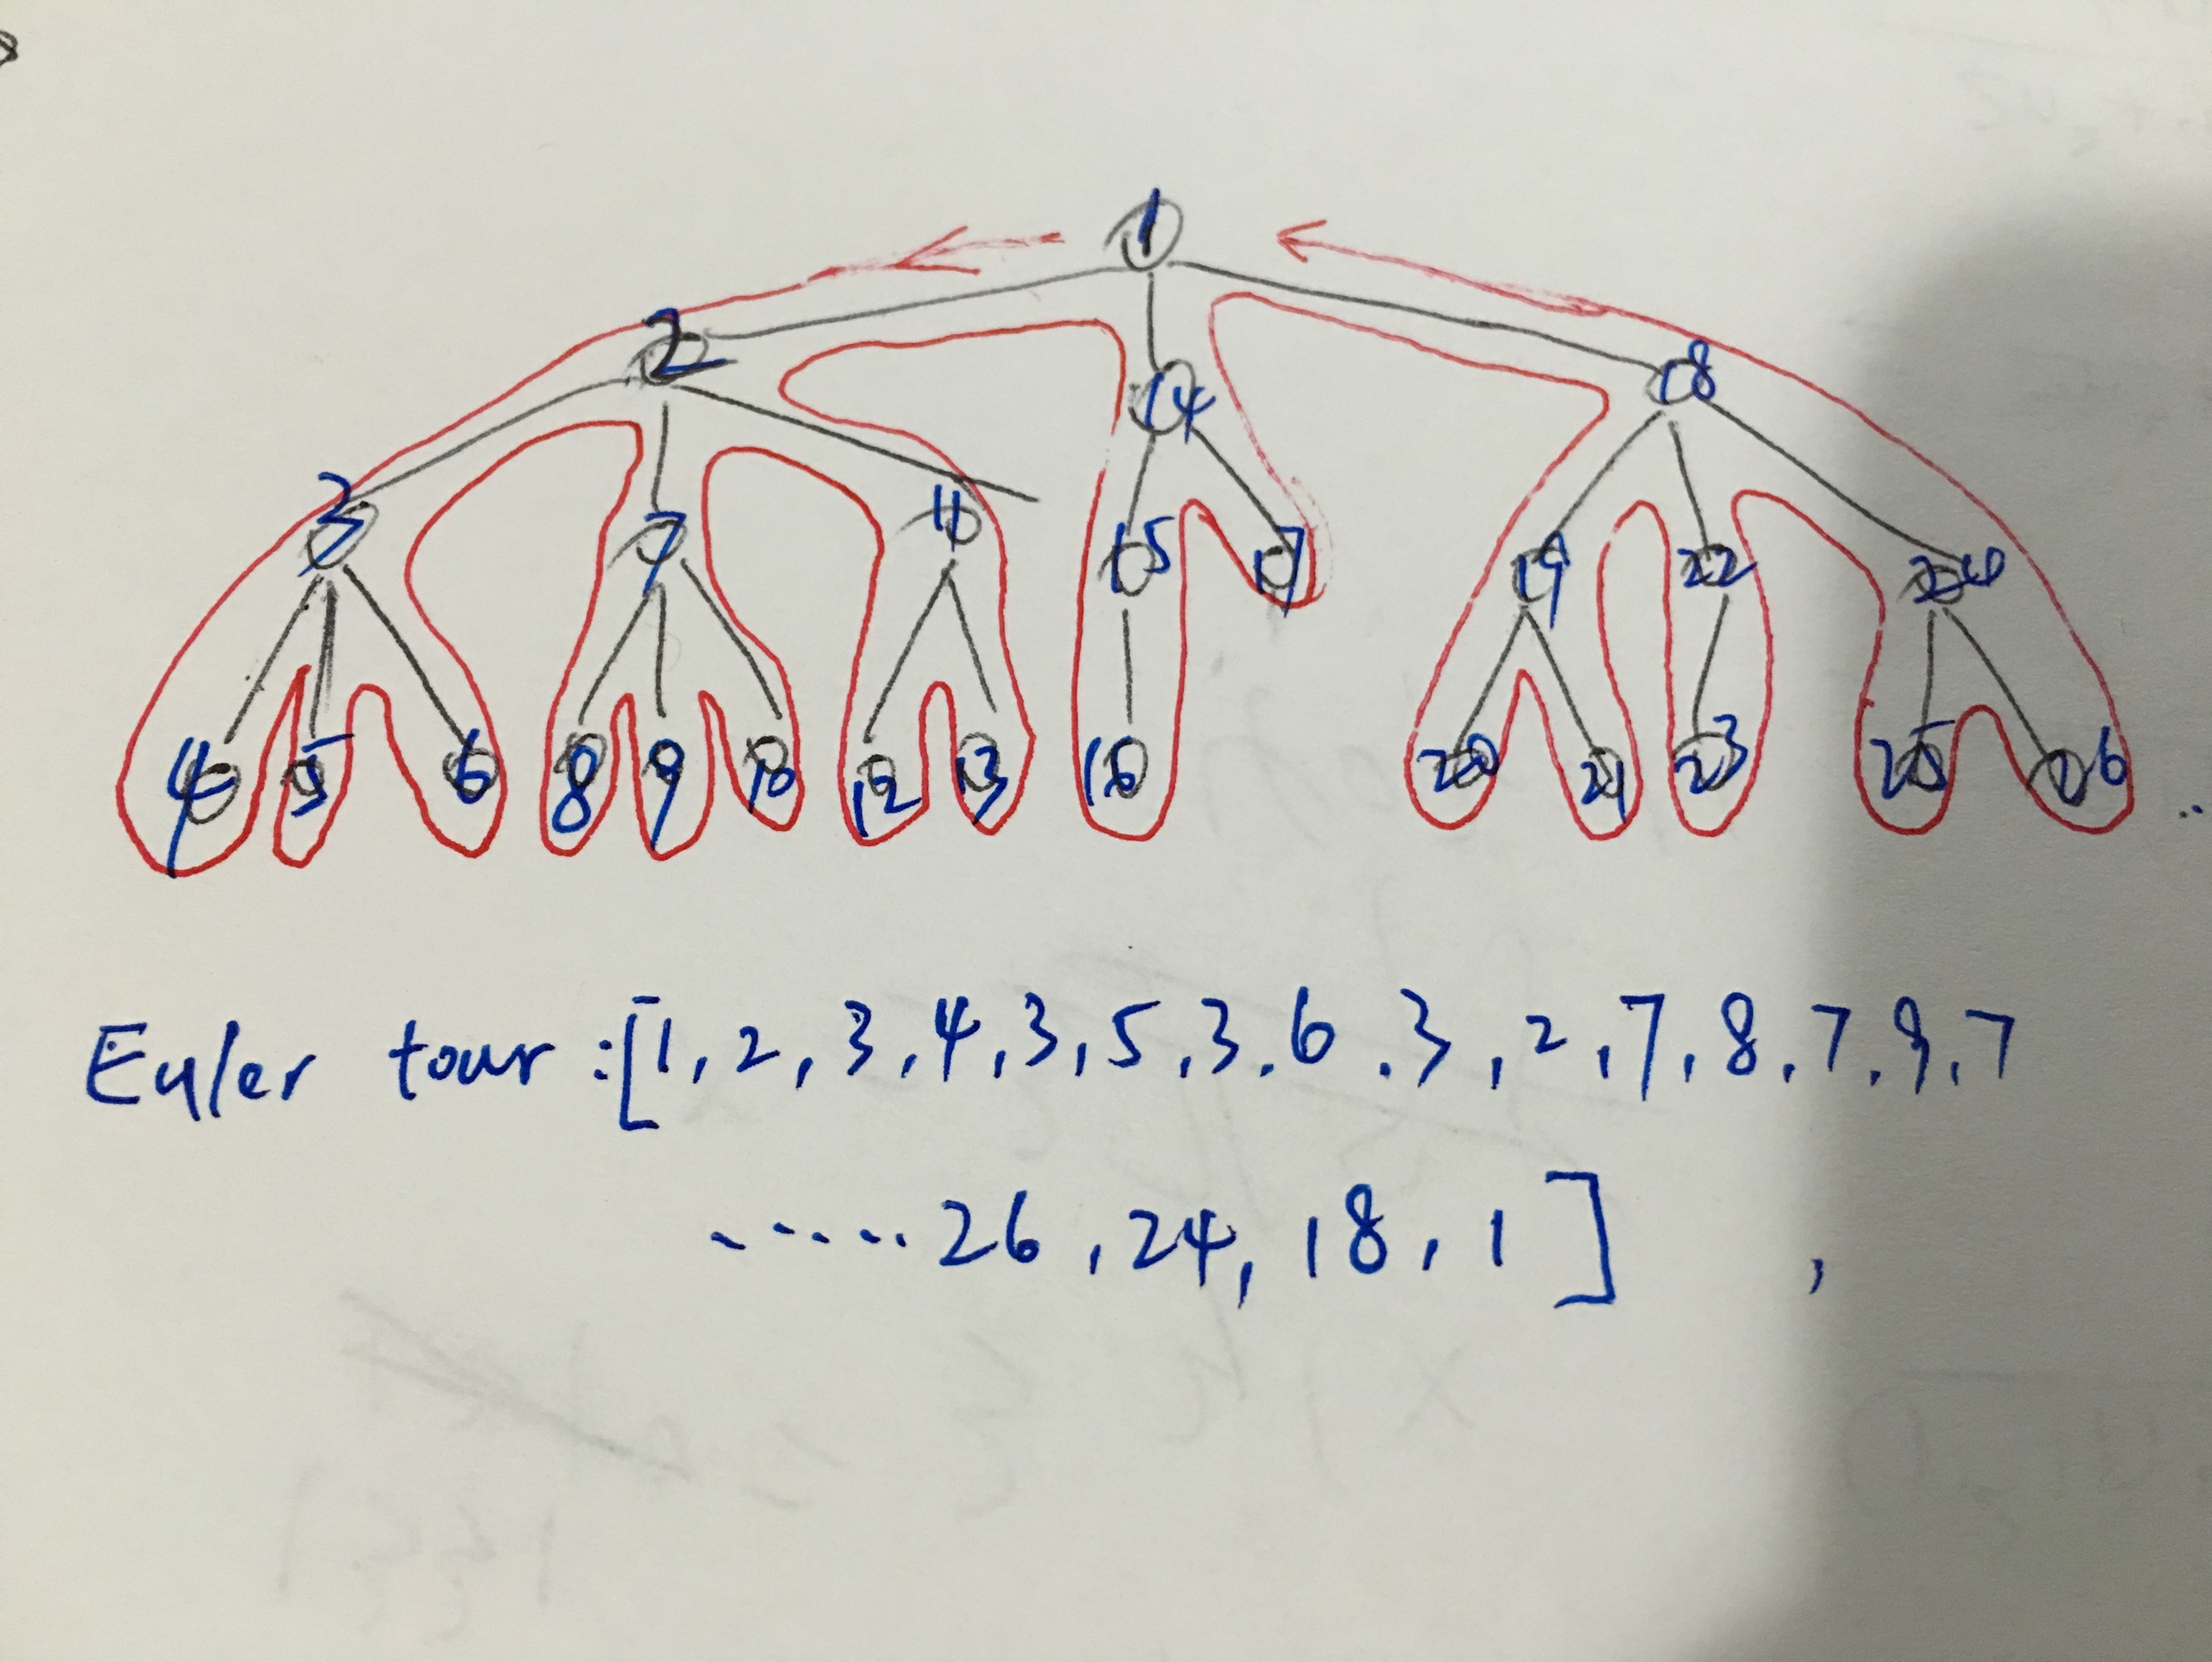 1
2 14 18
3 7 11 15 17 19 22 24
4 5 6 8 9 10 12 13 16 20 21 23 25 26
Euler tour :[1, 2, 3, 4, 3, 5, 3. 6 . 3, 2, 7, 8, 7. 9, 7
...... 26, 24, 18, 1 ] ,